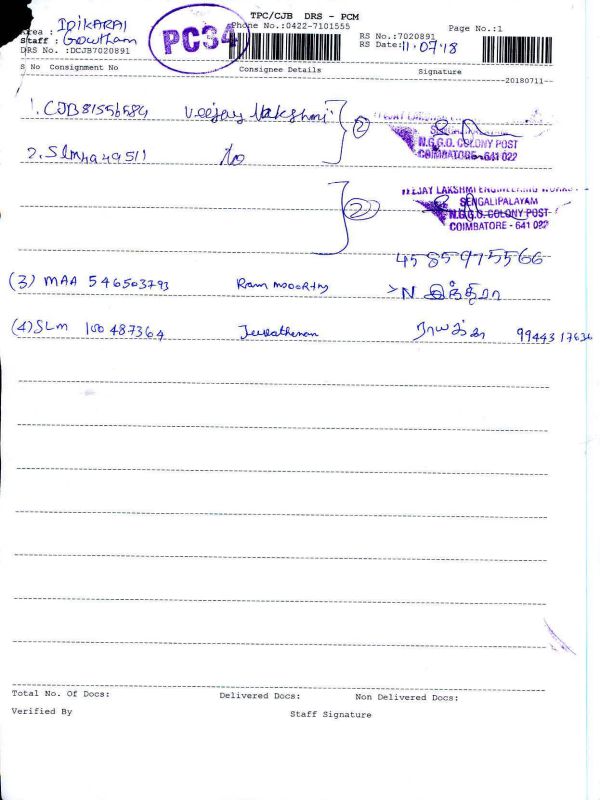 TPC/CJB DRS - PCM
Area : IDIKARAI
Phone No.:0422-7101555
Page No.:1
Staff : Gowtham
PC34
RS No.:7020891
DRS No. :DCJB7020891
RS Date: 11.07.18
S No Consignment No Consignee Details Signature
20180711
1. CJB81556584 Veejay Lakshmi } 2
SENGALIPALAYAM
N.G.G.O. COLONY POST
COIMBATORE - 641 022
2. Slm
} 2
VEEJAY LAKSHMI ENGINEERING WORKS
SENGALIPALAYAM
N.G.G.O. COLONY POST
COIMBATORE - 641 022
4585975566
(3) MAA 546503793 Ram moorthy N இந்திரா
(4) SLM 100487364 99443 17636
Total No. Of Docs: Delivered Docs: Non Delivered Docs:
Verified By Staff Signature